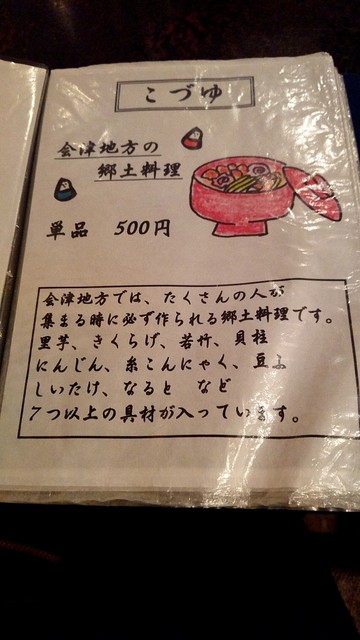 こづゆ
会津地方の
郷土料理
単品 500円
会津地方では、たくさんの人が
集まる時に必ず作られる郷土料理です。
里芋、きくらげ、若竹、貝柱
にんじん、糸こんにゃく、豆ふ
しいたけ、なると など
7つ以上の具材が入っています。